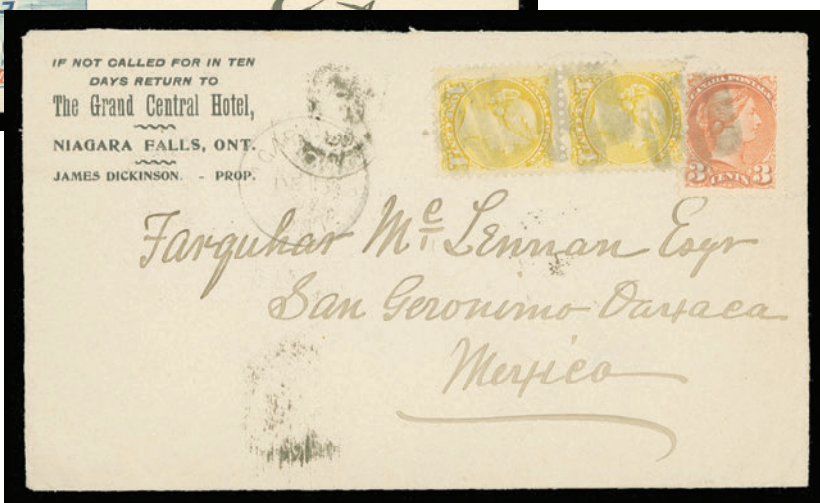 IF NOT CALLED FOR IN TEN
DAYS RETURN TO
The Grand Central Hotel,
NIAGARA FALLS, ONT.
JAMES DICKINSON. - PROP.
CANADA POSTAGE
3 CENTS 3
Farquhar Mc Lennan Esqr
San Geronimo Oaxaca
Mexico